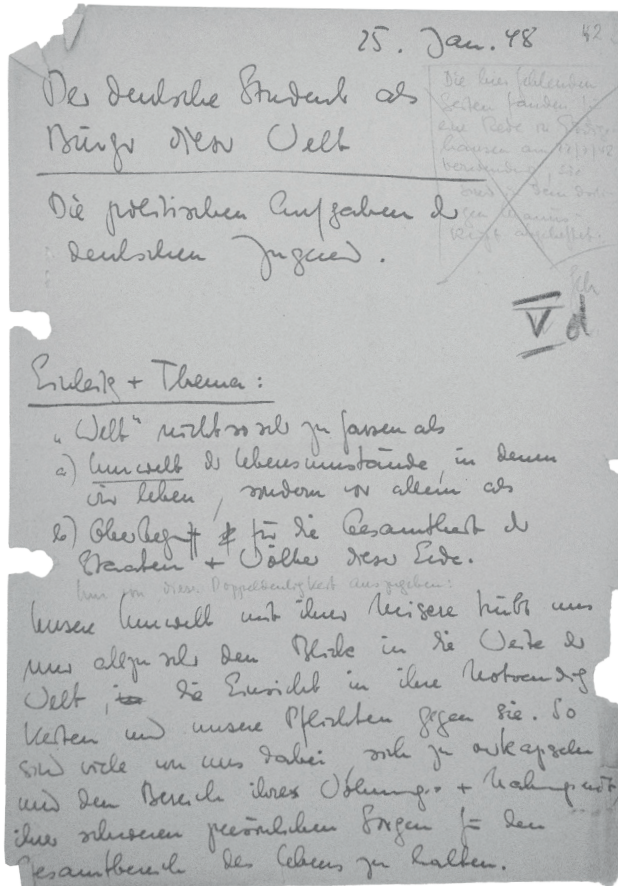 25. Jan. 48
42
Der deutsche Student als
Bürger dieser Welt
Die hier fehlenden
Seiten fanden
eine Rede
hausen am
Die politischen Aufgaben der
deutschen Jugend.
V d
Einleitg + Thema:
„Welt" nicht so sehr zu fassen als
a) Umwelt der Lebensumstände, in denen
wir leben, sondern vor allem als
b) Oberbegriff für die Gesamtheit der
Staaten + Völker dieser Erde.
Um von dieser Doppeldeutigkeit auszugehen:
Unsere Umwelt mit ihrer Misere trübt uns
nur allzu sehr den Blick in die Weite der
Welt, die Einsicht in ihre Notwendig
keiten und unsere Pflichten gegen sie. So
sind viele von uns dabei, sich zu verkapseln
und den Bereich ihres Wohnungs + Nahrungsnöt
ihrer schweren persönlichen Sorgen für den
Gesamtbereich des Lebens zu halten.